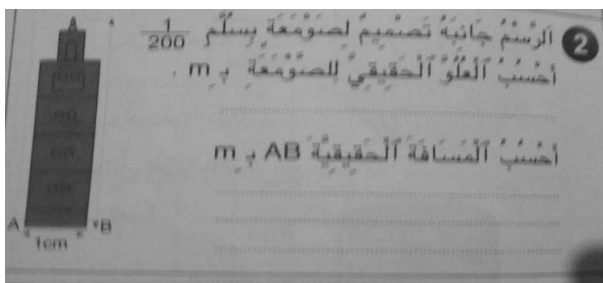 2 اَلرَّسْمُ جَانِبَهُ تَصْمِيمٌ لِصَوْمَعَةٍ بِسُلَّمِ 1/200
أَحْسُبُ اَلْعُلُوَّ اَلْحَقِيقِيَّ لِلصَّوْمَعَةِ بِـ m .
أَحْسُبُ اَلْمَسَافَةَ اَلْحَقِيقِيَّةَ AB بِـ m
A B
1cm